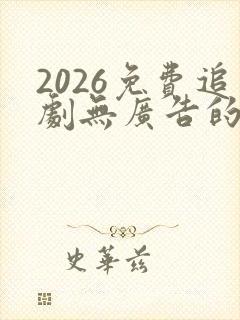 2026免費追
劇無廣告的
史華兹